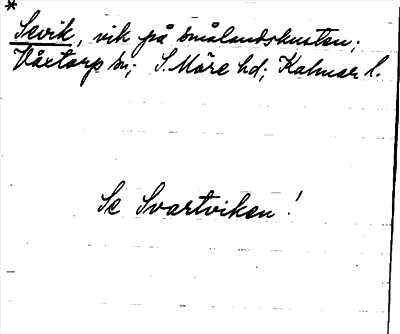 *
Sevik, vik på smålandskusten;
Våxtorp sn; S. Möre hd; Kalmar l.
Se Svartviken!